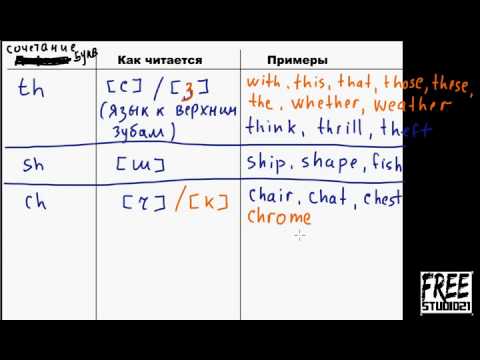 сочетание букв
Как читается
Примеры
th
[с] / [з]
(язык к верхним
зубам)
with, this, that, those, these,
the, whether, weather
think, thrill, theft
sh
[ш]
ship, shape, fish
ch
[ч] / [к]
chair, chat, chest
chrome
FREE
STUDIO21